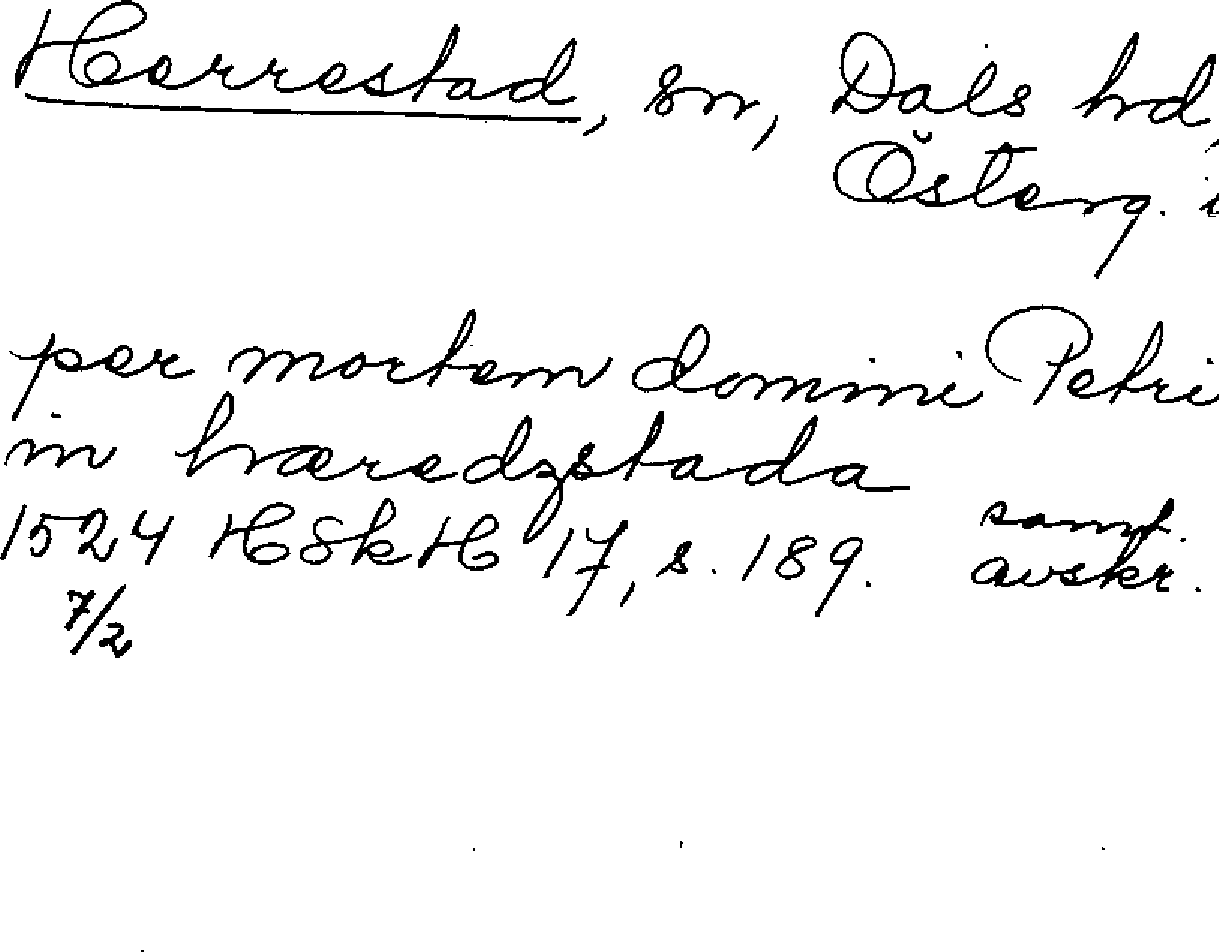 Herrestad, sn, Dals hd,
Österg.
per mortem domini Petri
in hæredzstada
1524 HSkH 17, s. 189. samt. avskr.
7/2